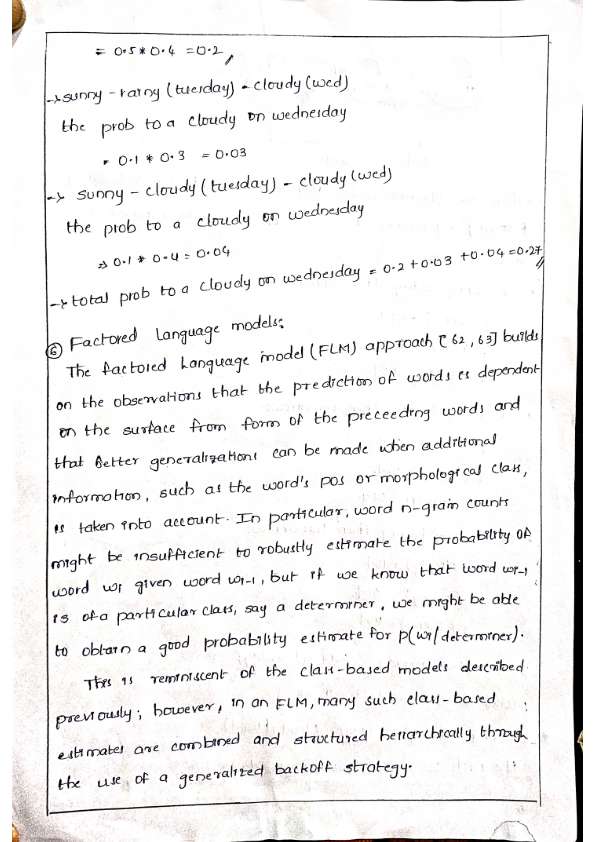 = 0.5 * 0.4 = 0.2
-> sunny - rainy (tuesday) - cloudy (wed)
the prob to a cloudy on wednesday
= 0.1 * 0.3 = 0.03
-> sunny - cloudy (tuesday) - cloudy (wed)
the prob to a cloudy on wednesday
=> 0.1 * 0.4 = 0.04
-> total prob to a cloudy on wednesday = 0.2 + 0.03 + 0.04 = 0.27
⑥ Factored Language models:
The factored Language model (FLM) approach [62, 63] builds
on the observations that the prediction of words is dependent
on the surface from form of the preceeding words and
that Better generalizations can be made when additional
information, such as the word's pos or morphological class,
is taken into account. In particular, word n-gram counts
might be insufficient to robustly estimate the probability of
word wi given word wi-1, but if we know that word wi-1
is of a particular class, say a determiner, we might be able
to obtain a good probability estimate for p(wi/determiner).
This is reminiscent of the class-based models described
previously; however, in an FLM, many such class-based
estimates are combined and structured heirarchically through
the use of a generalized backoff strategy.